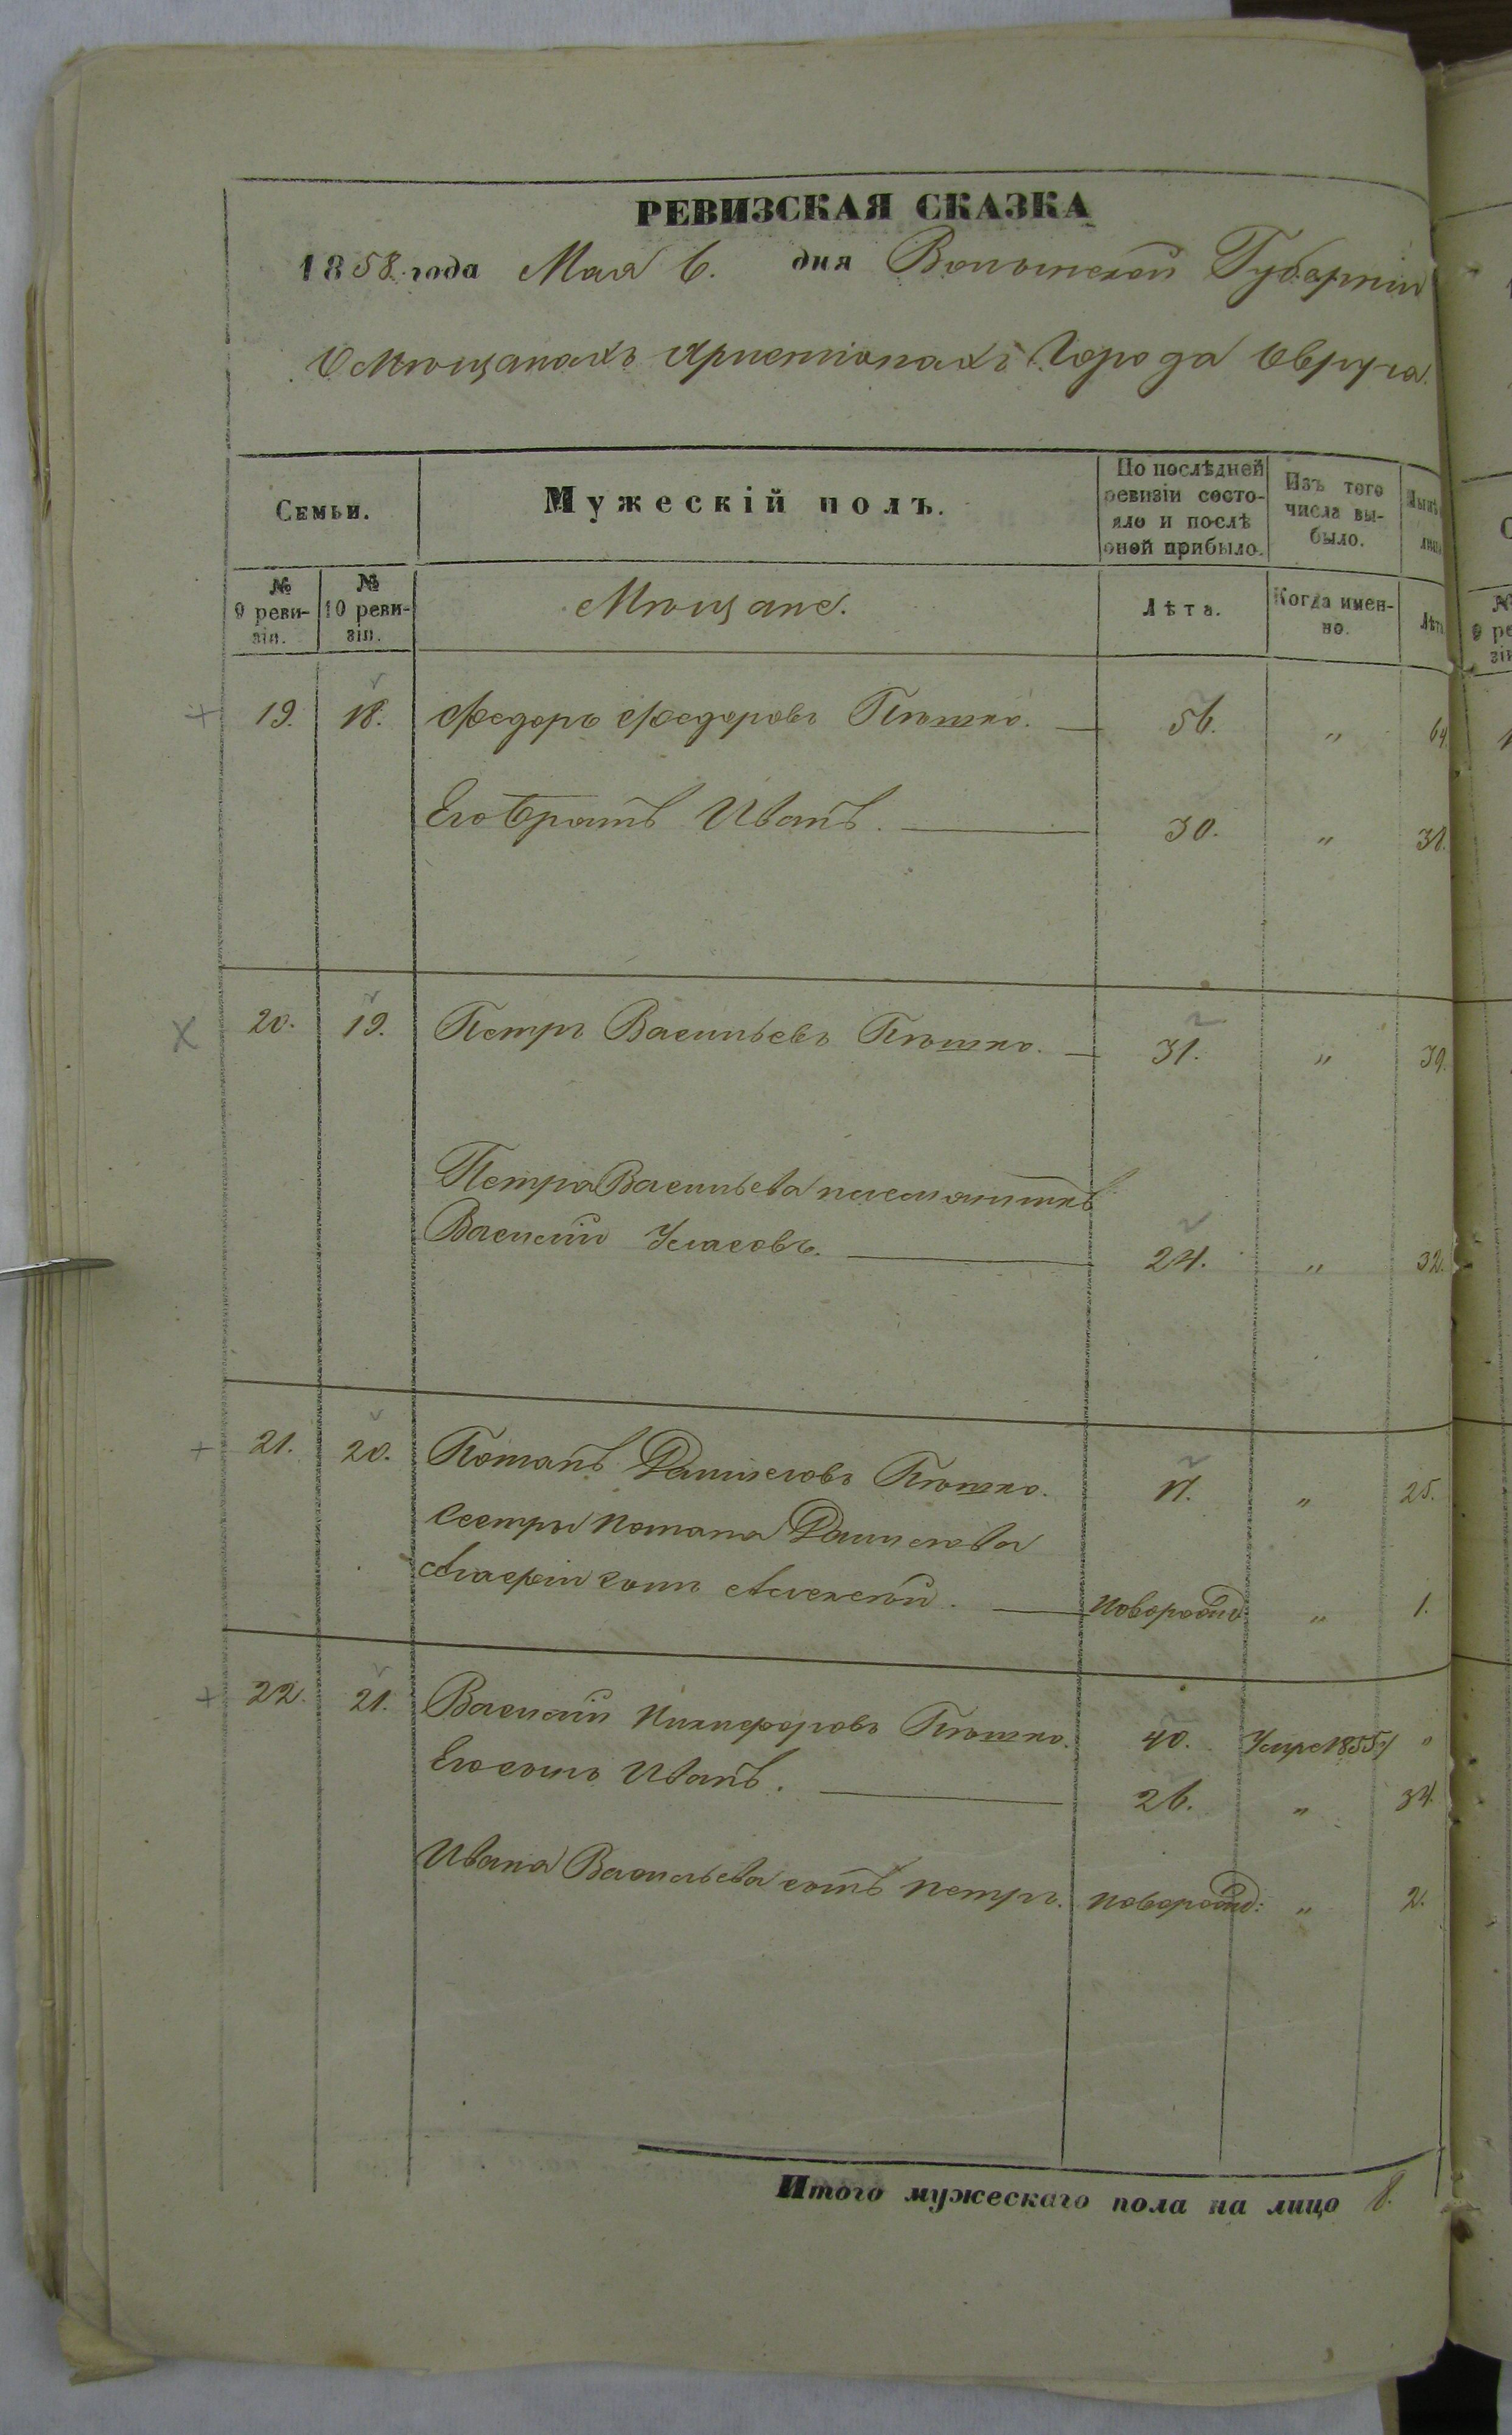 РЕВИЗСКАЯ СКАЗКА
1858 года Мая 6. дня Волынской Губерніи
О Мѣщанахъ Христіанахъ Города Овруча.
Семьи.
Мужескій полъ.
По послѣдней ревизіи состояло и послѣ оной прибыло.
Изъ того числа выбыло.
№ 9 ревизіи.
№ 10 ревизіи.
Мѣщане.
Лѣта.
Когда именно.
Лѣта
19. 18. Федоръ Федоровъ Пѣшко. 56. " 64.
Его братъ Иванъ. 30. " 38.
20. 19. Петръ Васильевъ Пѣшко. 31. " 39.
Петра Васильева племянникъ
Василій Власовъ. 24. " 32.
21. 20. Потапъ Данилевъ Пѣшко. 17. " 25.
Сестры Потапа Данилева
сынъ Алексѣй. новорожд: " 1.
22. 21. Василій Никифоровъ Пѣшко. 40. Умре 1855 "
Его сынъ Иванъ. 26. " 34.
Ивана Васильева сынъ Петръ. новорожд: " 2.
Итого мужескаго пола на лицо 8.